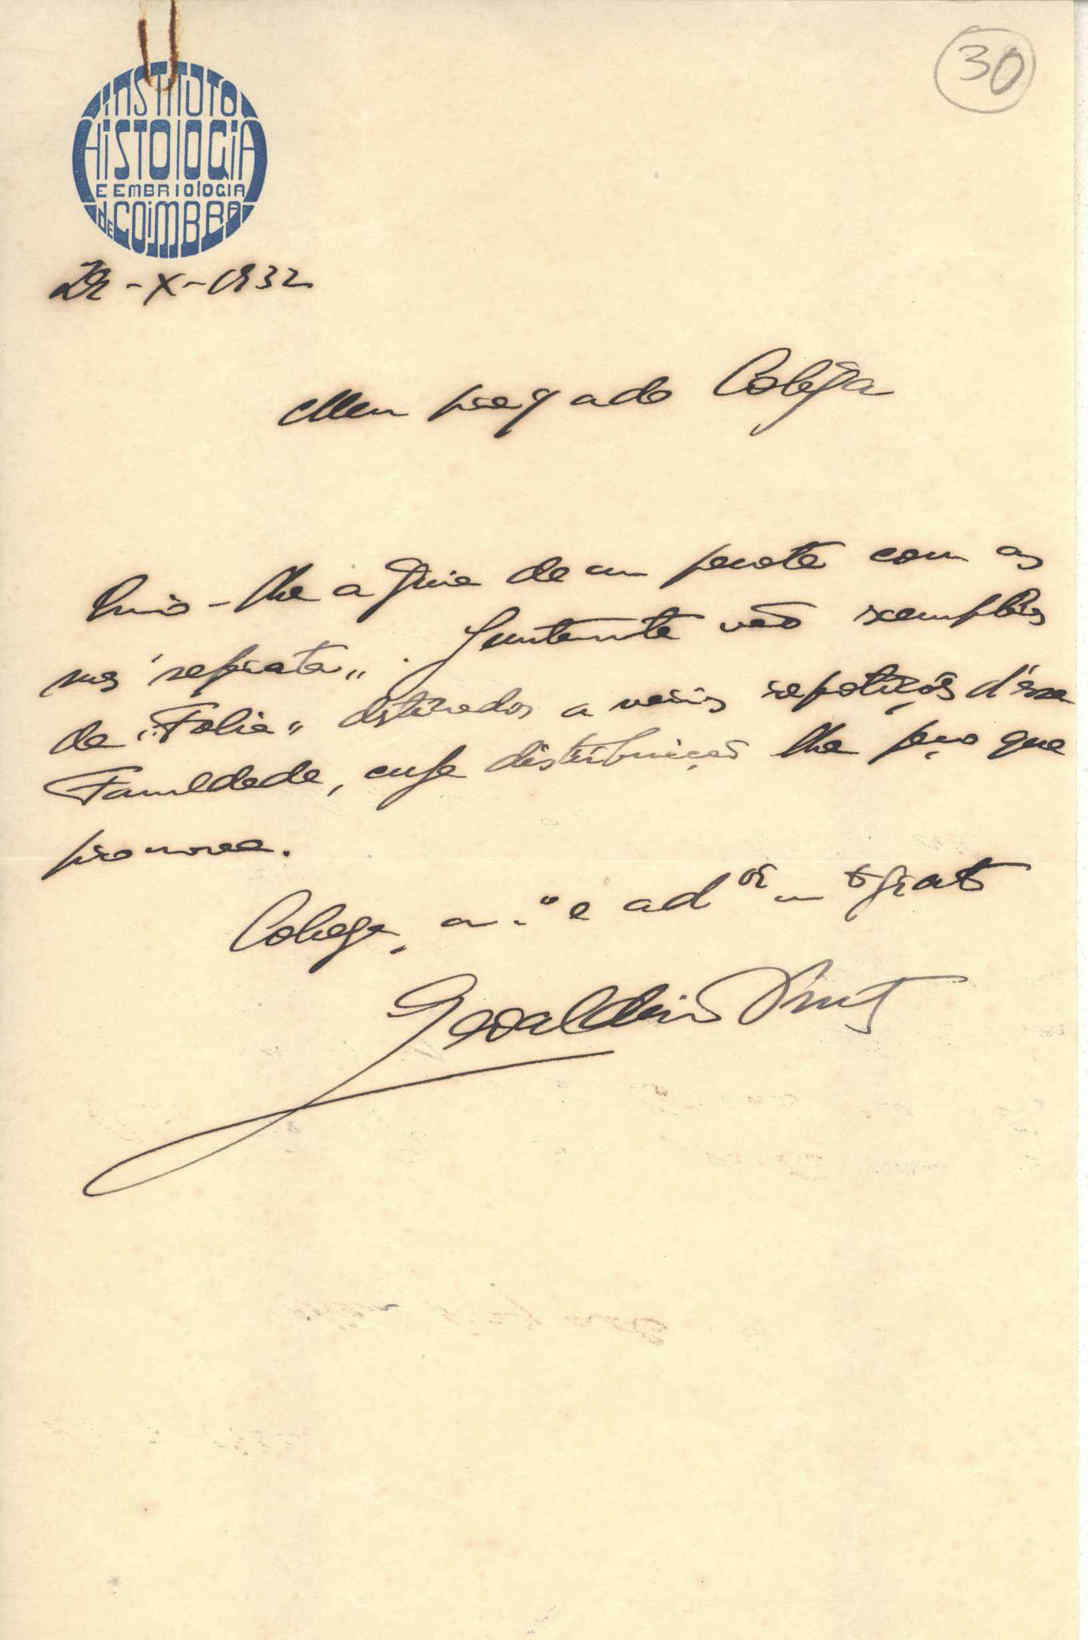 30
INSTITUTO
HISTOLOGIA
E EMBRIOLOGIA
DE COIMBRA
-X-1932
Meu prezado Colega
Envio-lhe a guia de um pacote com as
sus "separata". Juntamente vão exemplares
da "Folia" destinados a varias repartições d'essa
Faculdade, cuja distribuição lhe peço que
promova.
Colega, am.º e ad.or m.to grato
Geraldino Brites